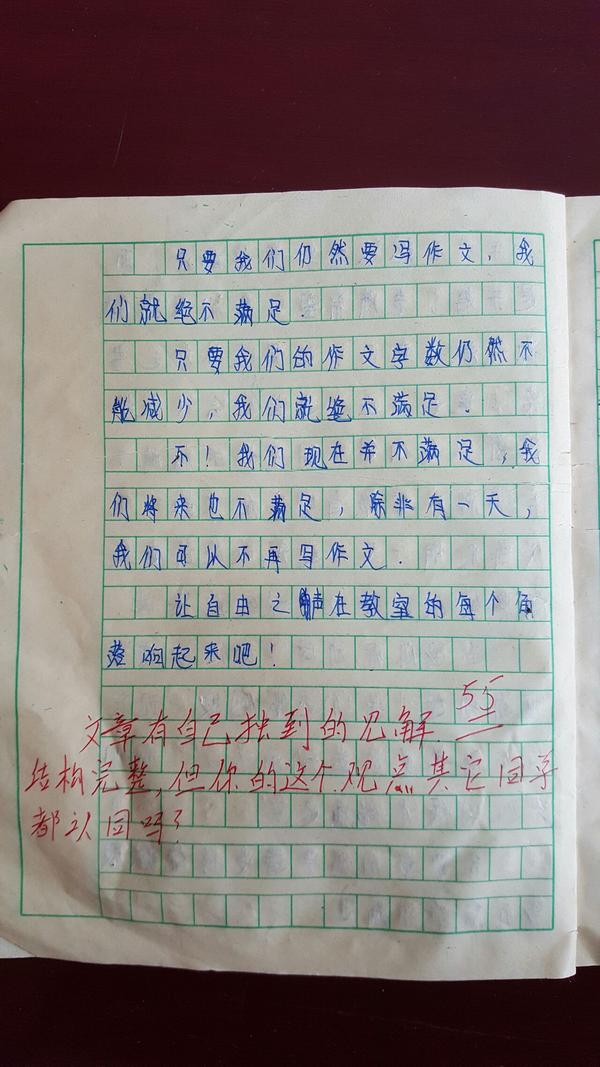 只要我们仍然要写作文，我
们就绝不满足．
只要我们的作文字数仍然不
能减少，我们就绝不满足．
不！我们现在并不满足，我
们将来也不满足，除非有一天，
我们可以不再写作文．
让自由之声在教室的每个角
落响起来吧！
55
文章有自己独到的见解．
结构完整，但你的这个观点其它同学
都认同吗？